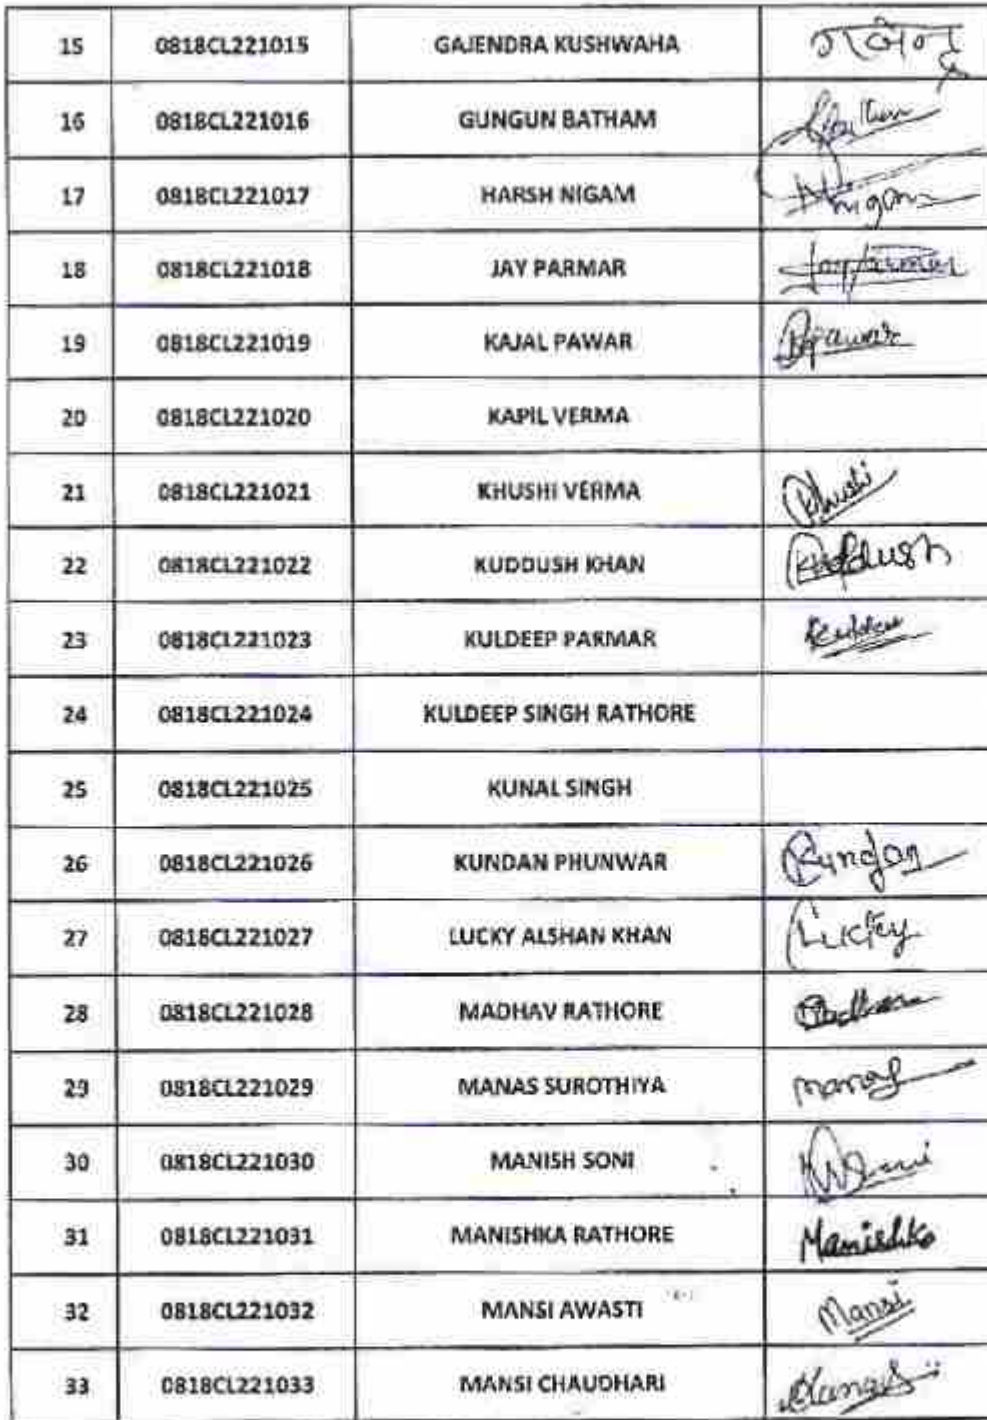 15 0818CL221015 GAJENDRA KUSHWAHA गजेन्द्र
16 0818CL221016 GUNGUN BATHAM
17 0818CL221017 HARSH NIGAM Nigam
18 0818CL221018 JAY PARMAR Jay Parmar
19 0818CL221019 KAJAL PAWAR Pawar
20 0818CL221020 KAPIL VERMA
21 0818CL221021 KHUSHI VERMA Khushi
22 0818CL221022 KUDDUSH KHAN Kuddush
23 0818CL221023 KULDEEP PARMAR
24 0818CL221024 KULDEEP SINGH RATHORE
25 0818CL221025 KUNAL SINGH
26 0818CL221026 KUNDAN PHUNWAR Kundan
27 0818CL221027 LUCKY ALSHAN KHAN Lucky
28 0818CL221028 MADHAV RATHORE
29 0818CL221029 MANAS SUROTHIYA manas
30 0818CL221030 MANISH SONI
31 0818CL221031 MANISHKA RATHORE Manishka
32 0818CL221032 MANSI AWASTI Mansi
33 0818CL221033 MANSI CHAUDHARI